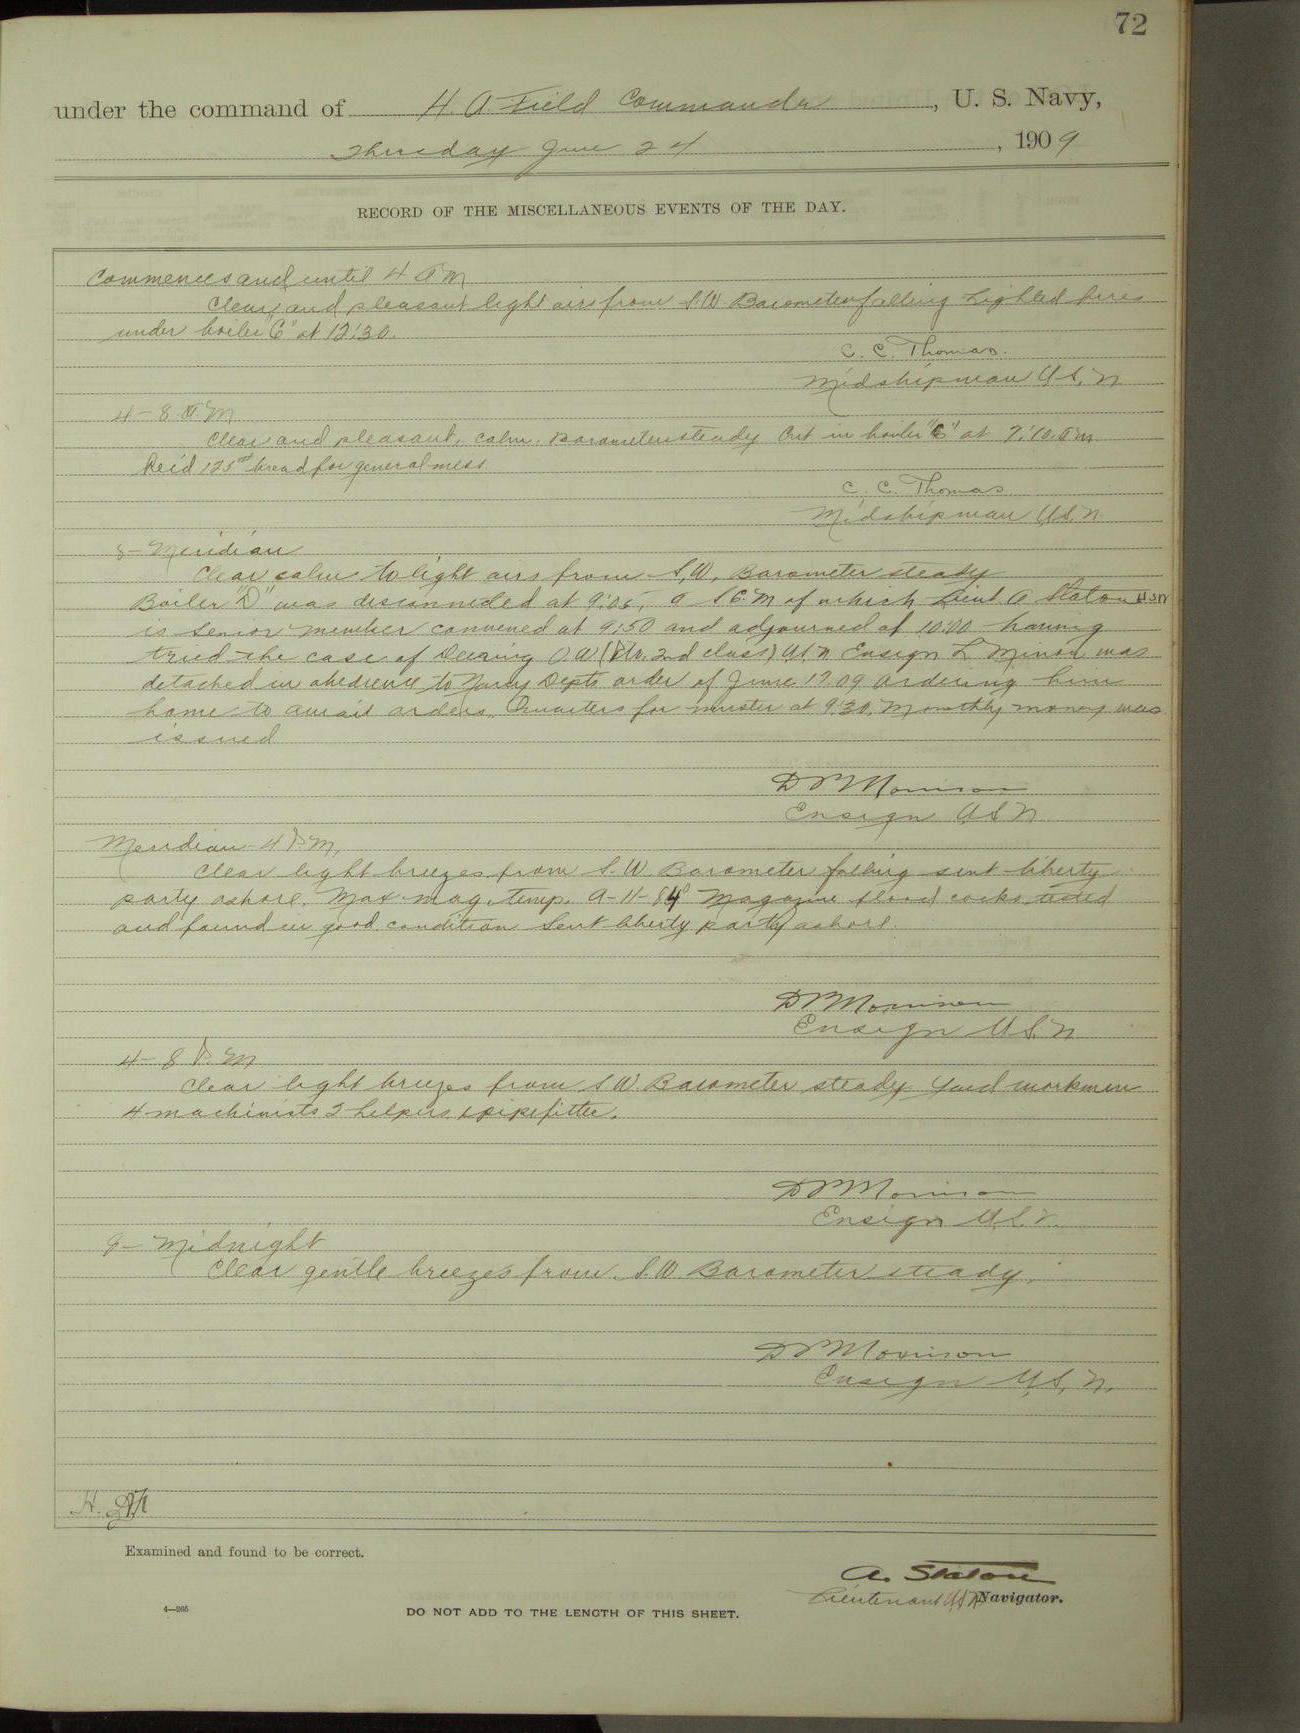 72
under the command of H. A. Field Commander, U. S. Navy,
Thursday June 24, 1909
RECORD OF THE MISCELLANEOUS EVENTS OF THE DAY.
Commences and until 4 A M
Clear and pleasant light airs from S.W. Barometer falling Lighted fires
under boiler "C" at 12:30.
C. C. Thomas.
Midshipman U.S.N
4 – 8 A.M
Clear and pleasant, calm. Barometer steady Cut in boiler "C" at 7:10 A m
Rec'd 125 bread for general mess.
C. C. Thomas
Midshipman U.S.N.
8 – Meridian
Clear calm to light airs from S.W. Barometer steady
Boiler "D" was disconnected at 9:05, a S C M of which Lieut A Staton USN
is Senior member convened at 9:50 and adjourned at 10:00 having
tried the case of Deering O.W ( 2nd class) U.S.N Ensign L Minor was
detached in obedience to Navy Depts order of June 17 09 ordering him
home to await orders. Quarters for muster at 9:30. Monthly money was
issued
D M Morrison
Ensign U.S N
Meridian – 4 P.M.
Clear light breezes from S.W. Barometer falling sent liberty
party ashore. Max mag. temp. A-H-84° Magazine flood cocks tested
and found in good condition Sent liberty party ashore.
D M Morrison
Ensign U.S. N
4 – 8 P. M
Clear light breezes from S.W. Barometer steady Yard workmen
4 machinists 2 helpers 1 pipefitter.
D M Morrison
Ensign U.S. N.
8 – Midnight
Clear gentle breezes from S.W. Barometer steady.
D M Morrison
Ensign U.S. N.
Examined and found to be correct.
A. Staton
Lieutenant USN Navigator.
4—265
DO NOT ADD TO THE LENGTH OF THIS SHEET.